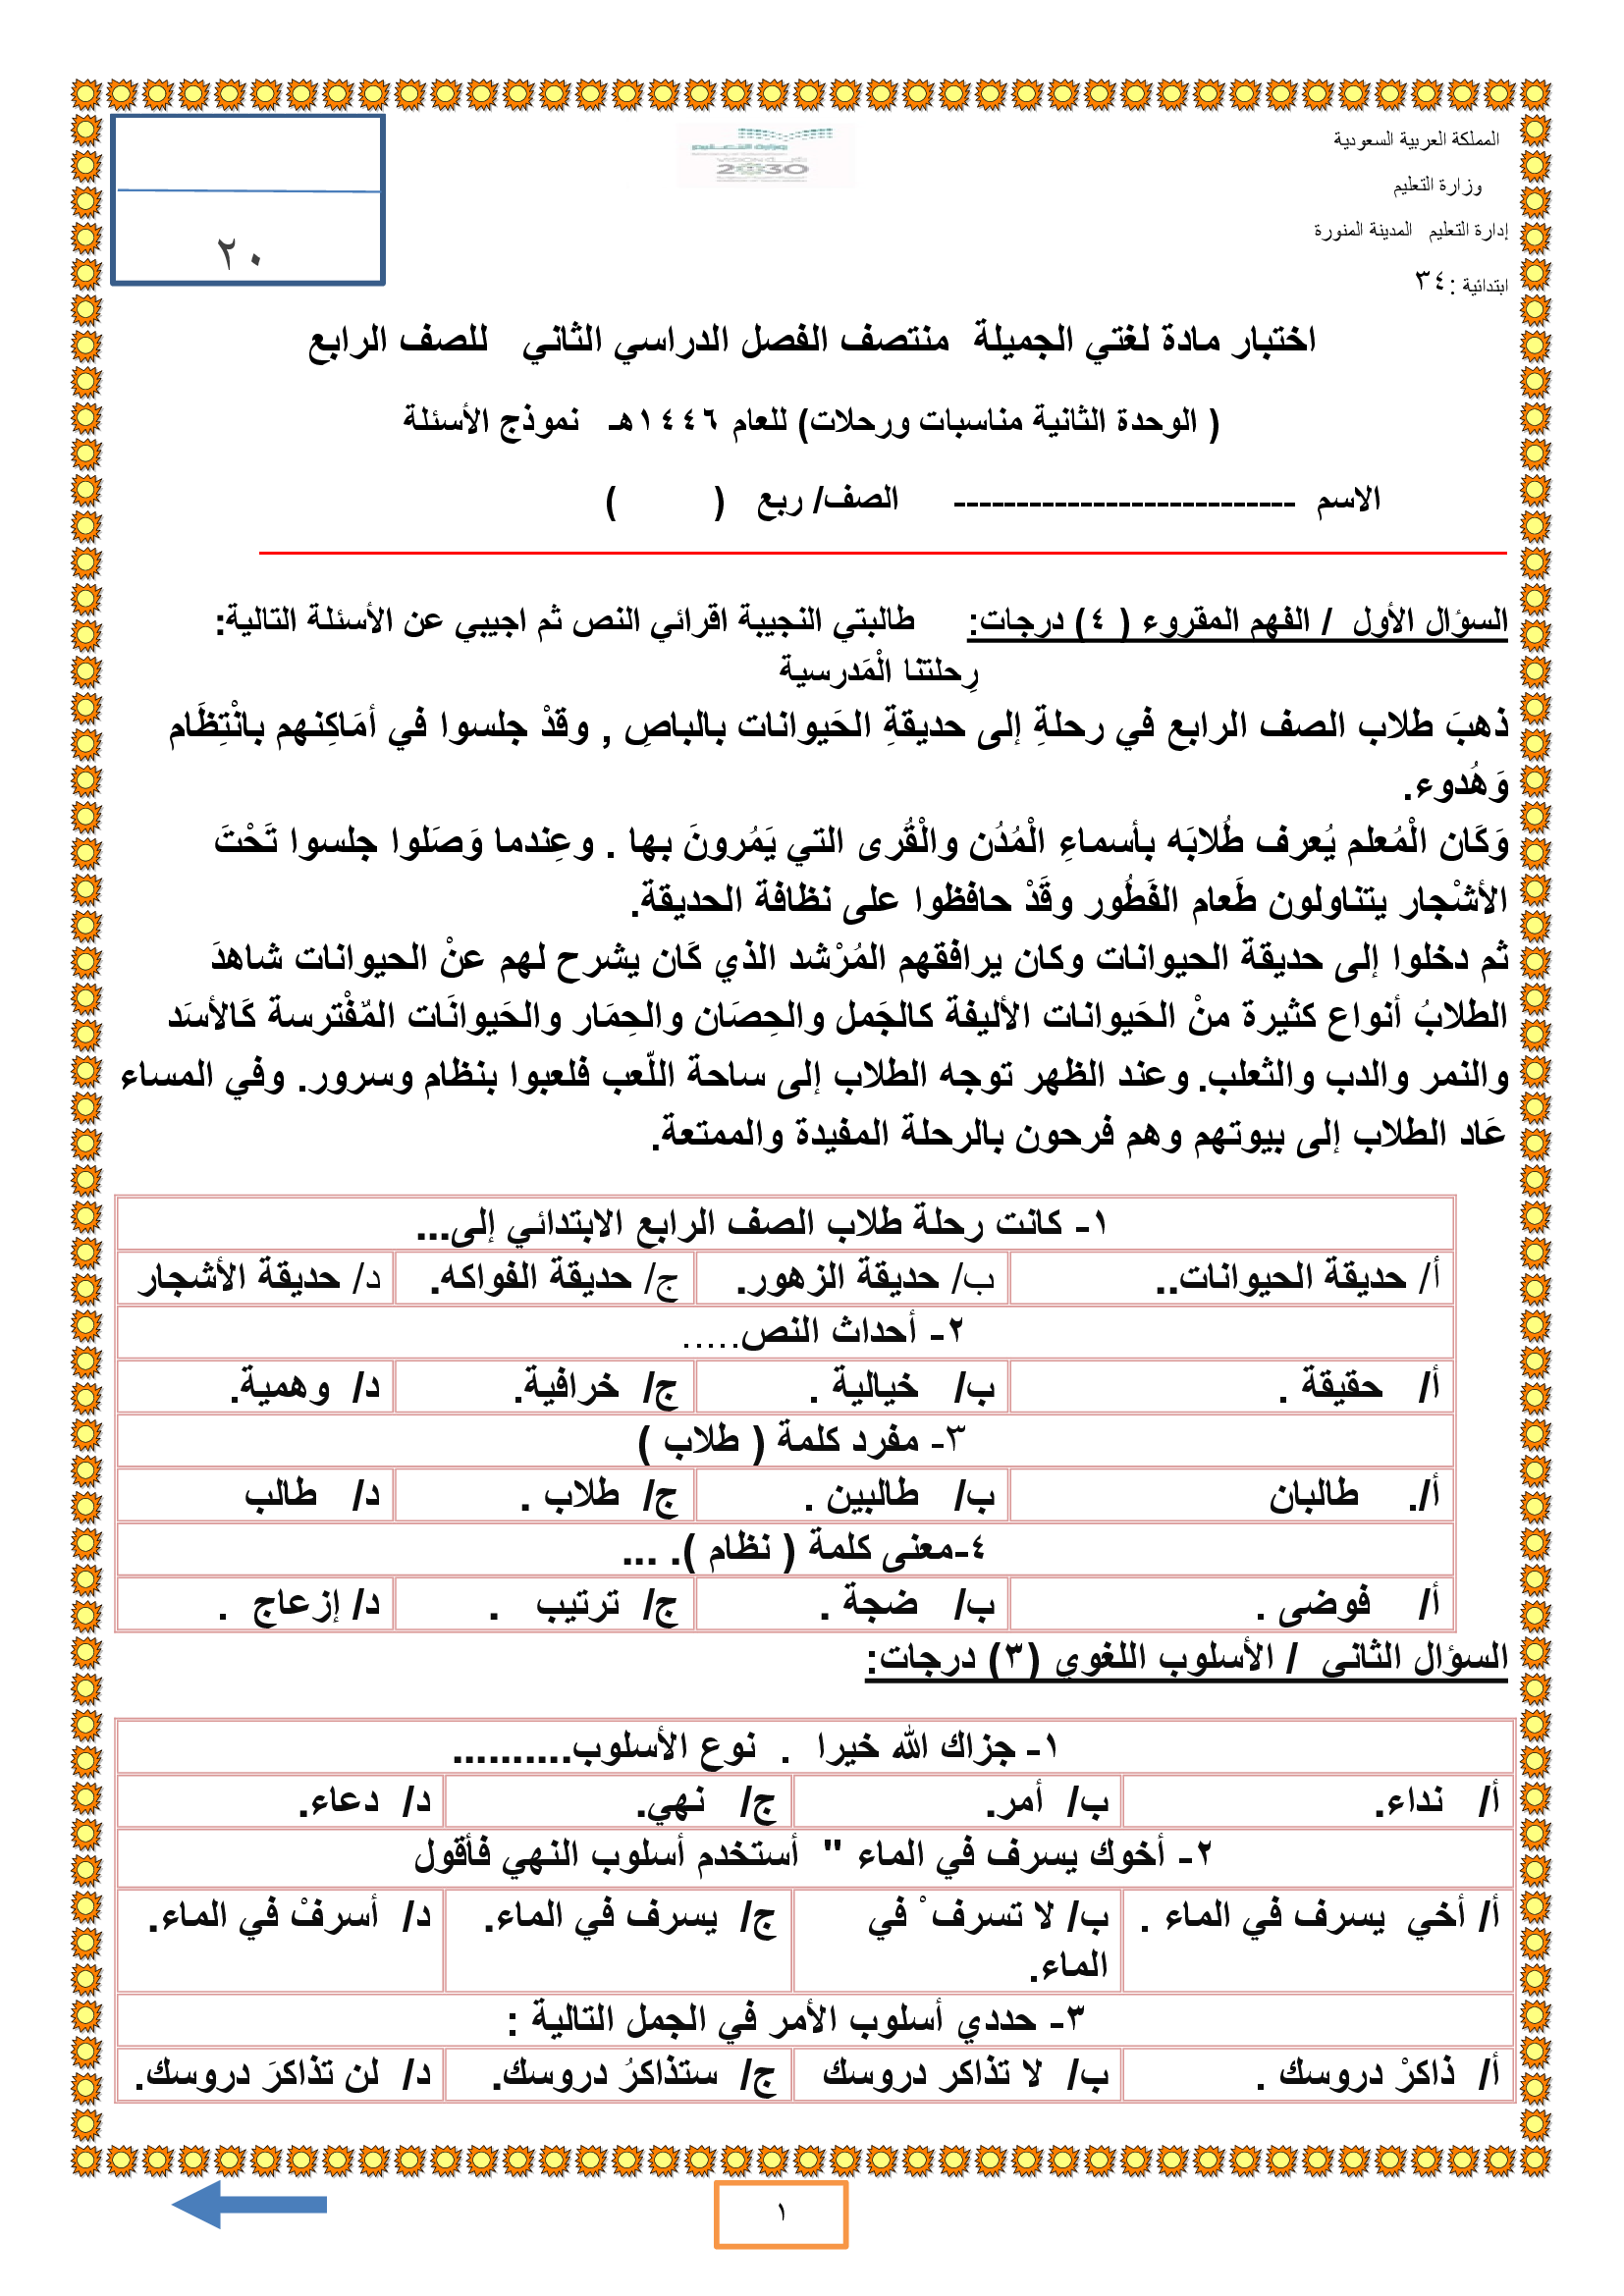 المملكة العربية السعودية
وزارة التعليم
إدارة التعليم المدينة المنورة
ابتدائية :٣٤
وزارة التعليم
VISION رؤية
2030
٢٠
اختبار مادة لغتي الجميلة منتصف الفصل الدراسي الثاني للصف الرابع
( الوحدة الثانية مناسبات ورحلات) للعام ١٤٤٦هـ نموذج الأسئلة
الاسم --------------------------- الصف/ ربع ( )
السؤال الأول / الفهم المقروء ( ٤) درجات: طالبتي النجيبة اقرائي النص ثم اجيبي عن الأسئلة التالية:
رِحلتنا الْمَدرسية
ذهبَ طلاب الصف الرابع في رحلةِ إلى حديقةِ الحَيوانات بالباصِ , وقدْ جلسوا في أمَاكِنهم بانْتِظَام
وَهُدوء.
وَكَان الْمُعلم يُعرف طُلابَه بأسماءِ الْمُدُن والْقُرى التي يَمُرونَ بها . وعِندما وَصَلوا جلسوا تَحْتَ
الأشْجار يتناولون طَعام الفَطُور وقَدْ حافظوا على نظافة الحديقة.
ثم دخلوا إلى حديقة الحيوانات وكان يرافقهم المُرْشد الذي كَان يشرح لهم عنْ الحيوانات شاهدَ
الطلابُ أنواع كثيرة منْ الحَيوانات الأليفة كالجَمل والحِصَان والحِمَار والحَيوانَات المٌفْترسة كَالأسَد
والنمر والدب والثعلب. وعند الظهر توجه الطلاب إلى ساحة اللّعب فلعبوا بنظام وسرور. وفي المساء
عَاد الطلاب إلى بيوتهم وهم فرحون بالرحلة المفيدة والممتعة.
١- كانت رحلة طلاب الصف الرابع الابتدائي إلى...
أ/ حديقة الحيوانات.. ب/ حديقة الزهور. ج/ حديقة الفواكه. د/ حديقة الأشجار
٢- أحداث النص.....
أ/ حقيقة . ب/ خيالية . ج/ خرافية. د/ وهمية.
٣- مفرد كلمة ( طلاب )
أ/. طالبان ب/ طالبين . ج/ طلاب . د/ طالب
٤-معنى كلمة ( نظام ). ...
أ/ فوضى . ب/ ضجة . ج/ ترتيب . د/ إزعاج .
السؤال الثاني / الأسلوب اللغوي (٣) درجات:
١- جزاك الله خيرا . نوع الأسلوب..........
أ/ نداء. ب/ أمر. ج/ نهي. د/ دعاء.
٢- أخوك يسرف في الماء " أستخدم أسلوب النهي فأقول
أ/ أخي يسرف في الماء . ب/ لا تسرف ْ في ج/ يسرف في الماء. د/ أسرفْ في الماء.
الماء.
٣- حددي أسلوب الأمر في الجمل التالية :
أ/ ذاكرْ دروسك . ب/ لا تذاكر دروسك ج/ ستذاكرُ دروسك. د/ لن تذاكرَ دروسك.
١